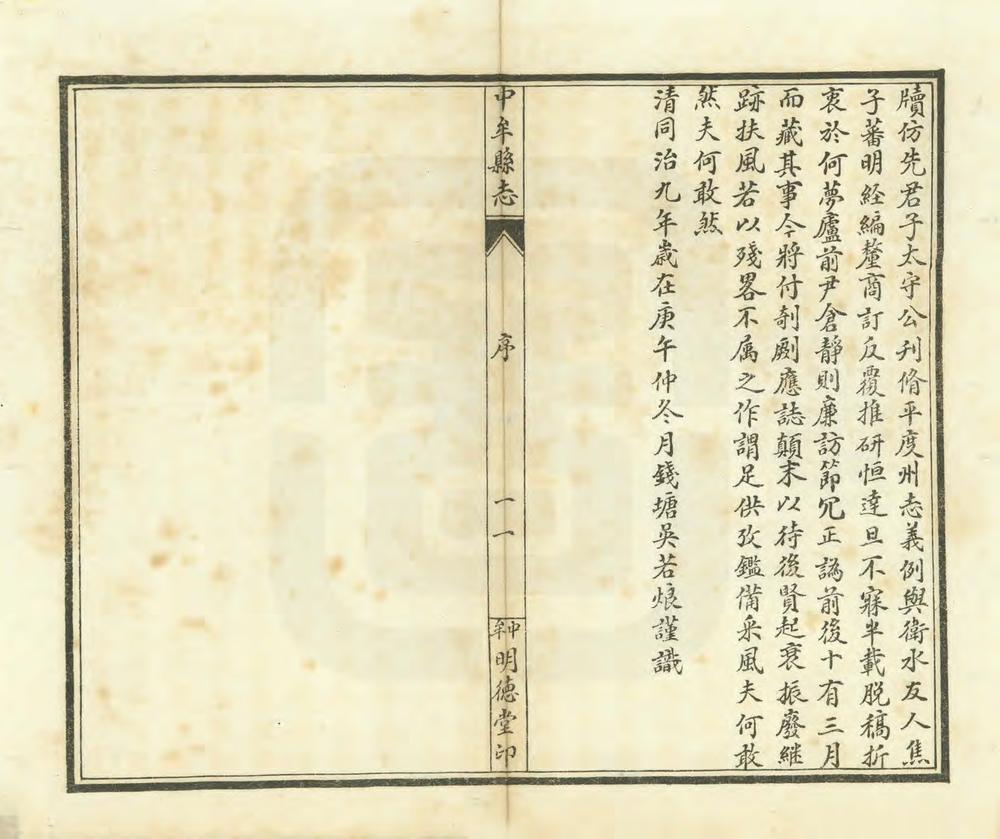 牘仿先君子太守公刋脩平度州志義例與衛水友人焦
子蕃明経編釐商訂反覆推研恒達旦不寐半載脫稿折
衷於何夢廬前尹倉靜則廉訪節冗正譌前後十有三月
而藏其事今將付剞劂應誌顛末以待後賢起衰振廢継
跡扶風若以殘畧不属之作謂足供攷鑑備采風夫何敢
然夫何敢然
清同治九年歳在庚午仲冬月錢塘吳若烺謹識
中牟縣志
序
一一
中牟明德堂印